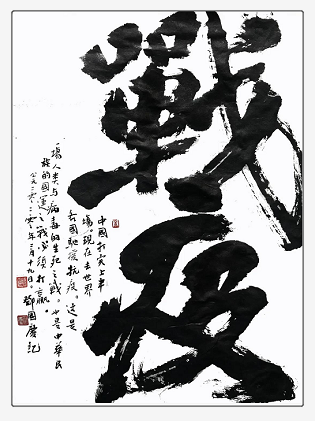 戰疫
中國打完上半
場。現在去世界
各國馳援抗疫。這是
一場人类与病毒的生死之戰。也是中華民
族的國運之戰必須打贏。
公元二零二零年三月十九日。鄧國慶記